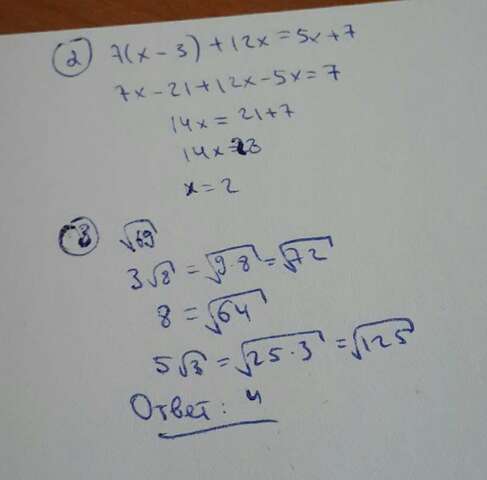 2) 7(x-3)+12x=5x+7
7x-21+12x-5x=7
14x=21+7
14x=28
x=2
3) √69
3√8=√9·8=√72
8=√64
5√3=√25·3=√125
Ответ: 4